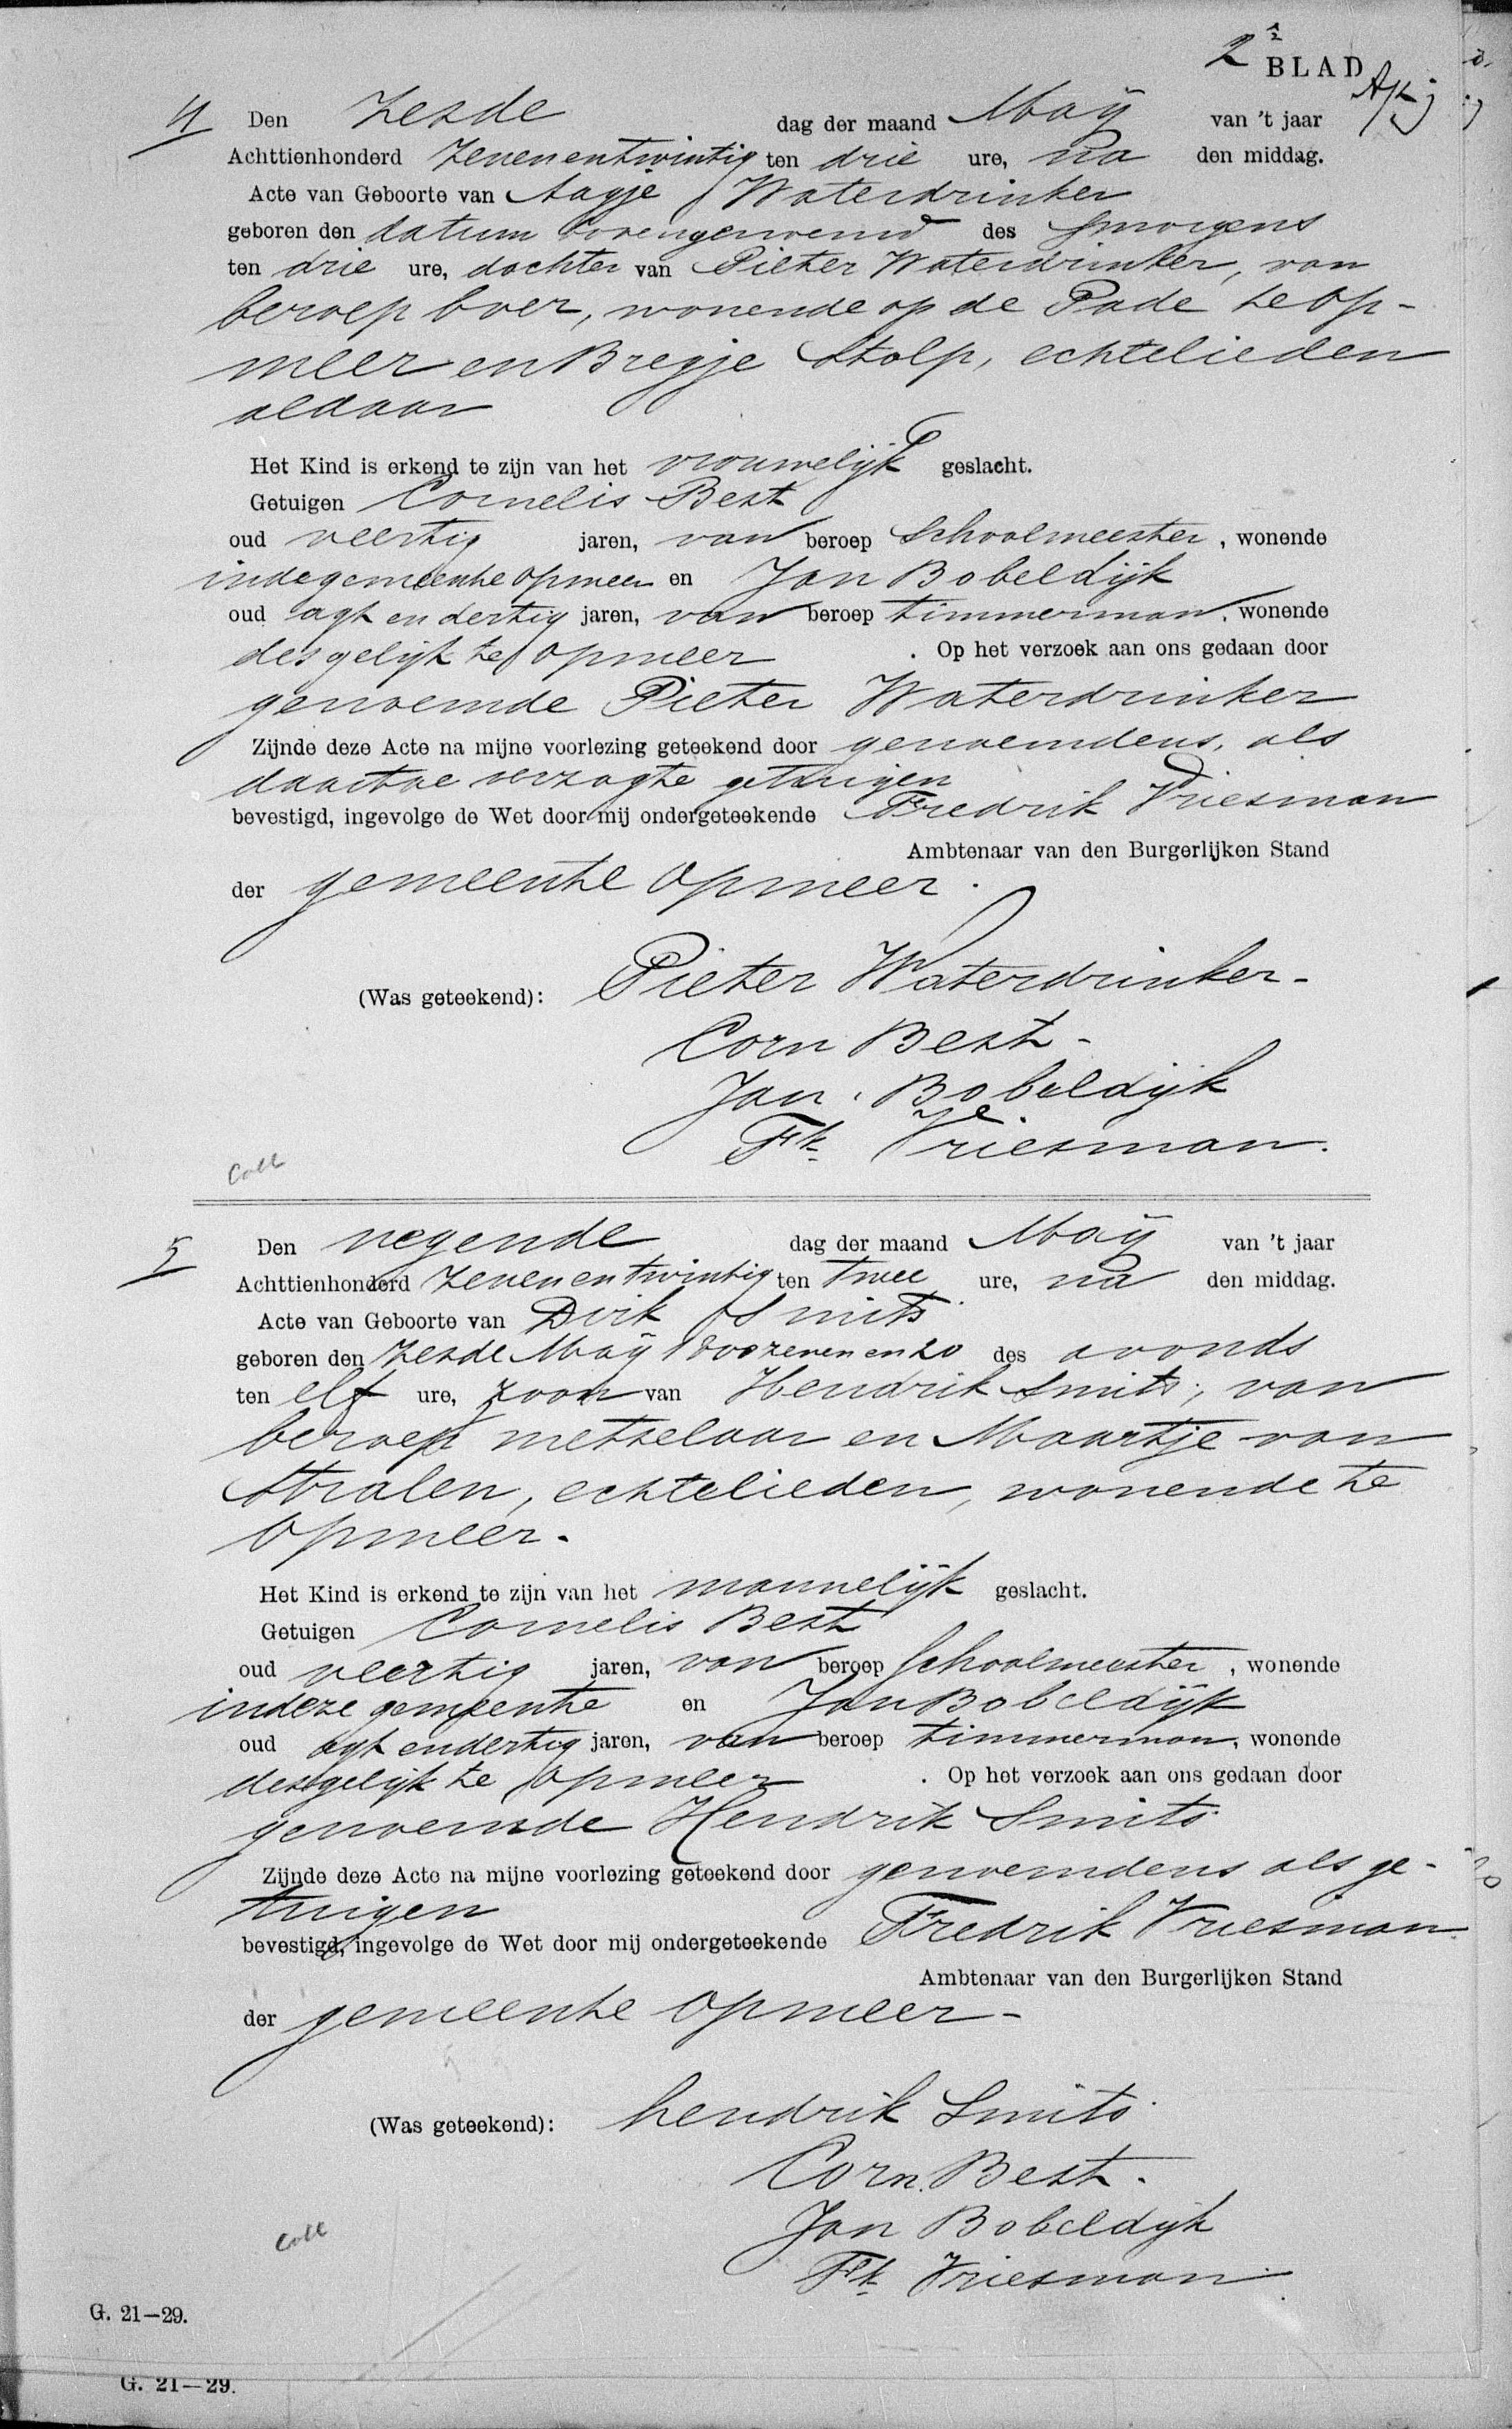 2e BLAD
4 Den Zesde dag der maand Maÿ van 't jaar
Achttienhonderd Zevenentwintig ten drie ure, na den middag.
Acte van Geboorte van Aagje Waterdrinker
geboren den datum bovengenoemd des smorgens
ten drie ure, dochter van Pieter Waterdrinker, van
beroep boer, wonende op de Pade te Op-
meer en Bregje Stolp, echtelieden
aldaar
Het Kind is erkend te zijn van het vrouwelijk geslacht.
Getuigen Cornelis Best
oud veertig jaren, van beroep Schoolmeester, wonende
in de gemeente Opmeer en Jan Bobeldijk
oud agt en dertig jaren, van beroep timmerman, wonende
desgelijk te Opmeer. Op het verzoek aan ons gedaan door
genoemde Pieter Waterdrinker
Zijnde deze Acte na mijne voorlezing geteekend door genoemdens, als
daartoe verzogte getuigen
bevestigd, ingevolge de Wet door mij ondergeteekende Fredrik Vriesman
Ambtenaar van den Burgerlijken Stand
der gemeente Opmeer.
(Was geteekend): Pieter Waterdrinker-
Corn Best-
Jan. Bobeldijk
Fk Vriesman.
Coll
5 Den negende dag der maand Maÿ van 't jaar
Achttienhonderd Zevenentwintig ten twee ure, na den middag.
Acte van Geboorte van Dirk Smits
geboren den Zesde Maÿ 1800 zeven en 20 des avonds
ten elf ure, zoon van Hendrik Smits, van
beroep metselaar en Maartje van
Stralen, echtelieden, wonende te
Opmeer.
Het Kind is erkend te zijn van het mannelijk geslacht.
Getuigen Cornelis Best
oud veertig jaren, van beroep Schoolmeester, wonende
in deze gemeente en Jan Bobeldijk
oud agt en dertig jaren, van beroep timmerman, wonende
desgelijk te Opmeer. Op het verzoek aan ons gedaan door
genoemde Hendrik Smits
Zijnde deze Acte na mijne voorlezing geteekend door genoemdens als ge-
tuigen
bevestigd, ingevolge de Wet door mij ondergeteekende Fredrik Vriesman
Ambtenaar van den Burgerlijken Stand
der gemeente Opmeer-
(Was geteekend): hendrik Smits
Corn. Best.
Jan Bobeldijk
Fk Vriesman
Coll
G. 21—29.
G. 21—29.